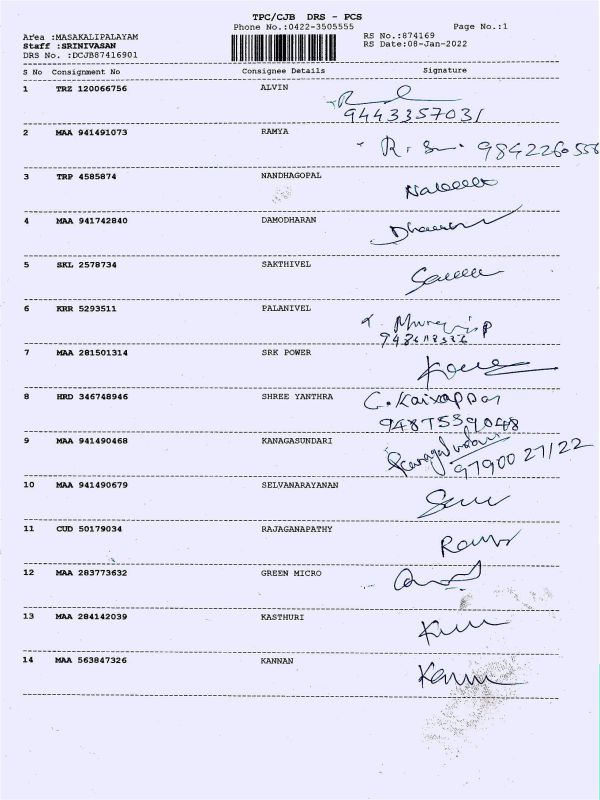 TPC/CJB DRS - PCS
Phone No.:0422-3505555 Page No.:1
Area :MASAKALIPALAYAM RS No.:874169
Staff :SRINIVASAN RS Date:08-Jan-2022
DRS No. :DCJB87416901
S No Consignment No Consignee Details Signature
1 TRZ 120066756 ALVIN
9443357031
2 MAA 941491073 RAMYA
3 TRP 4585874 NANDHAGOPAL
4 MAA 941742840 DAMODHARAN
5 SKL 2578734 SAKTHIVEL
6 KRR 5293511 PALANIVEL
7 MAA 281501314 SRK POWER
8 HRD 346748946 SHREE YANTHRA
9487539048
9 MAA 941490468 KANAGASUNDARI
97900 27122
10 MAA 941490679 SELVANARAYANAN
11 CUD 50179034 RAJAGANAPATHY
12 MAA 283773632 GREEN MICRO
13 MAA 284142039 KASTHURI
14 MAA 563847326 KANNAN